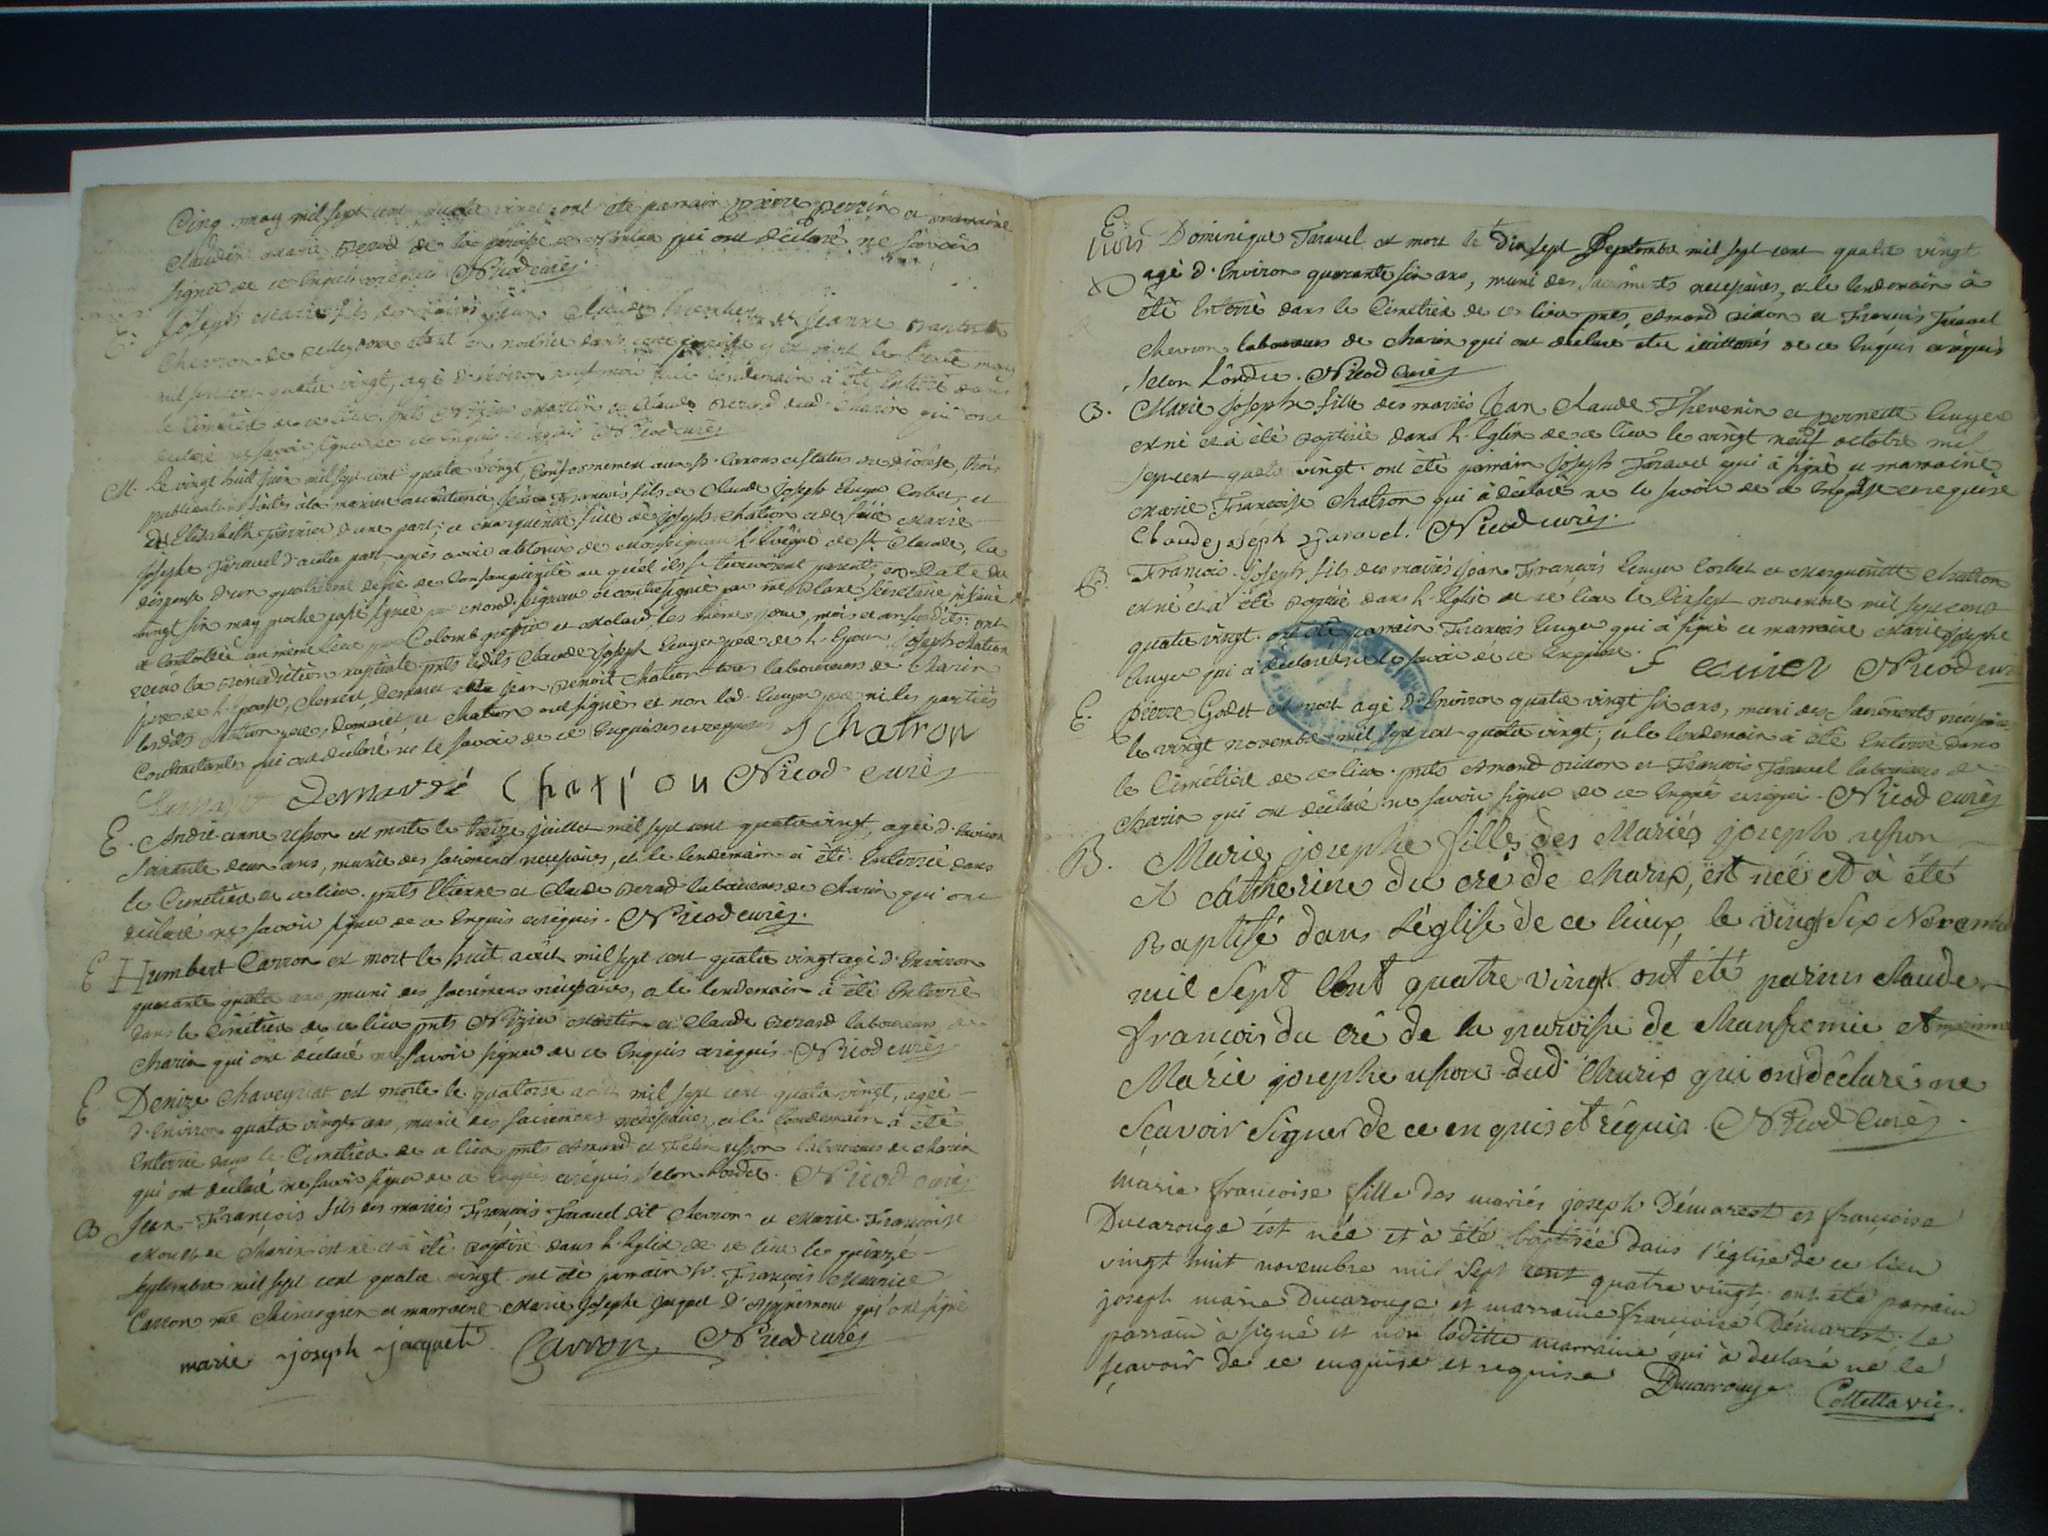 Cinq may mil sept cent quatre vingt ont été parrain pierre perrin et marraine
Claudine marie de la paroisse de qui ont déclaré ne sçavoir
signer de ce enquis requis Nicod curé
E. Joseph Marie fils des mariés Jean Claude et Jeanne
Chevron de étant en nourrice dans cette paroisse y est mort le trente may
mil sept cent quatre vingt, agé d'environ neuf mois et le lendemain à été enterré dans
le Cimetière de ce lieu, prés Nizier Martin et Claude Berard dud. Charix qui ont
declaré ne savoir signer de ce enquis et requis Nicod curé
M. Le vingt huit juin mil sept cent quatre vingt, Conformément aux st. Canons et statuts du diocese, trois
publications faites à la maniere accoutumée, Jean François fils de Claude Joseph Cuyer Corbet, et
d'Elisabeth d'une part; et Marguerite fille de Joseph Chatron et de feüe Marie
Josephe Taravel d'autre part, après avoir obtenue de Monseigneur l'Evêque de st. Claude, la
dispense d'un quatrieme degré de Consanguinité au quel ils se trouverent parents, en date du
vingt six may proche passé signée par mond. seigneur et contresignée par me secrétaire
et Controllée au même lieu par Colomb greffier et Molard, les mêmes jour, mois et an susdits: ont
reçus la Bénédiction nuptiale prés lesdits Claude Joseph Cuyer pere de l'Epoux, Joseph Chatron
pere de l'épouse, Clement Demaret et Jean Benoit Chatron tous laboureurs de Charix
lesdits Chatron pere, demaret, et Chatron ont signés et non led. Cuyer pere ni les parties
Contractantes qui ont declaré ne le savoir de ce enquises et requises J Chatron
Chatron Nicod curé
E. André anne usson est morte le treize juillet mil sept cent quatre vingt, agée d'Environ
soixante deux ans, munie des sacremens necessaires, et le lendemain à été Enterrée dans
le Cimetiere de ce lieu prés Etienne et Claude Berard laboureurs de Charix qui ont
déclaré ne savoir signer de ce enquis et requis. Nicod curé.
E Humbert Carron est mort le huit août mil sept cent quatre vingt agé d'Environ
quarante quatre ans muni des sacremens nécessaires, et le lendemain à été Enterré
dans le Cimetiere de ce lieu prés Nizier Martin et Claude Berard laboureurs de
Charix qui ont déclaré ne savoir signer de ce enquis et requis. Nicod curé
E Denize Chaveyriat est morte le quatorse août mil sept cent quatre vingt, agée
d'Environ quatre vingt ans, munie des sacremens necessaires, et le lendemain à été
Enterrée dans le Cimetiere de ce lieu prés Amand et Felix usson laboureurs de Charix
qui ont declaré ne savoir signer de ce enquis et requis selon l'ordre. Nicod curé
B Jean-François fils des mariés François Taravel dit Chevron et Marie Françoise
de Charix est né et à été Baptisé dans l'Eglise de ce lieu le quinze
septembre mil sept cent quatre vingt ont été parrain sr. François Maurice
Carron me Chirurgien et marraine Marie Josephe Jaquet d'Apremont qui ont signé
marie joseph jacquet Carron Nicod curé
E. Dominique Taravel est mort le dix sept septembre mil sept cent quatre vingt
agé d'Environ quarante six ans, muni des sacrements necessaires, et le lendemain à
été enterré dans le Cimetiere de ce lieu prés Amand et François Taravel
Chevron laboureurs de Charix qui ont declaré etre illittérés de ce enquis et requis
selon l'ordre. Nicod curé
B. Marie Josephe fille des mariés Jean Claude Thevenin et pernette Cuyer
est né et à été Baptisée dans l'Eglise de ce lieu le vingt neuf octobre mil
sept cent quatre vingt. ont été parrain Joseph Taravel qui à signé et marraine
Marie Françoise Chatron qui à déclaré ne le savoir de ce enquise et requise
Claude joseph taravel. Nicod curé.
B. François-Joseph fils des mariés Jean François Cuyer Corbet et Marguerite Chatron
est né et à été Baptisé dans l'Eglise de ce lieu le dix sept novembre mil sept cent
quatre vingt. ont été parrain François Cuyer qui à signé et marraine Marie Josephe
Cuyer qui à déclaré ne le savoir de ce enquise. f cuier Nicod curé
E. pierre Godet est mort agé d'Environ quatre vingt six ans, muni des sacrements nécessaires
le vingt novembre mil sept cent quatre vingt; et le lendemain à été Enterré dans
le Cimétiere de ce lieu prés Amand et François Taravel laboureurs de
Charix qui ont déclaré ne savoir signer de ce enquis et requis. Nicod curé
B. Marie josephe fille des Mariés joseph usson
et Catherine du cré de Charix, est née et à été
Baptisé dans l'église de ce lieux, le vingt six Novembre
mil sept Cent quatre vingt ont été parins Claude
françois du cré de la paroisse de Chanfremie et marinne
Márie josephe usson dud. Charix qui on déclaré ne
sçavoir signer de ce enquis et réquis. Nicod curé.
marie françoise fille des mariés joseph Démarest et françoise
Ducarouge est née et à été baptisée dans l'église de ce lieu
vingt huit novembre mil sept cent quatre vingt ont été parrain
joseph marie Ducarouge et marraine françoise Démarest; le
parrain à signé et non laditte marraine qui à declaré ne le
sçavoir de ce enquise et requise Ducarouge Collettavic.